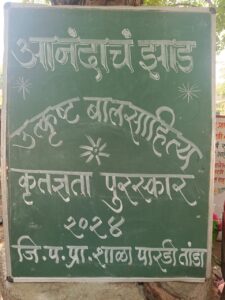 आनंदाचं झाड
उत्कृष्ट बालसाहित्य
कृतज्ञता पुरस्कार
२०२४
जि.प.प्रा.शाळा पारडी तांडा